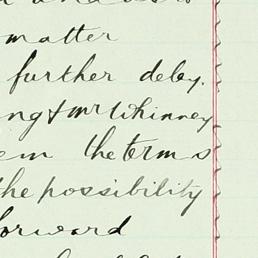 matter
further delay.
ng & Mr Whinney
em the terms
the possibility
forward